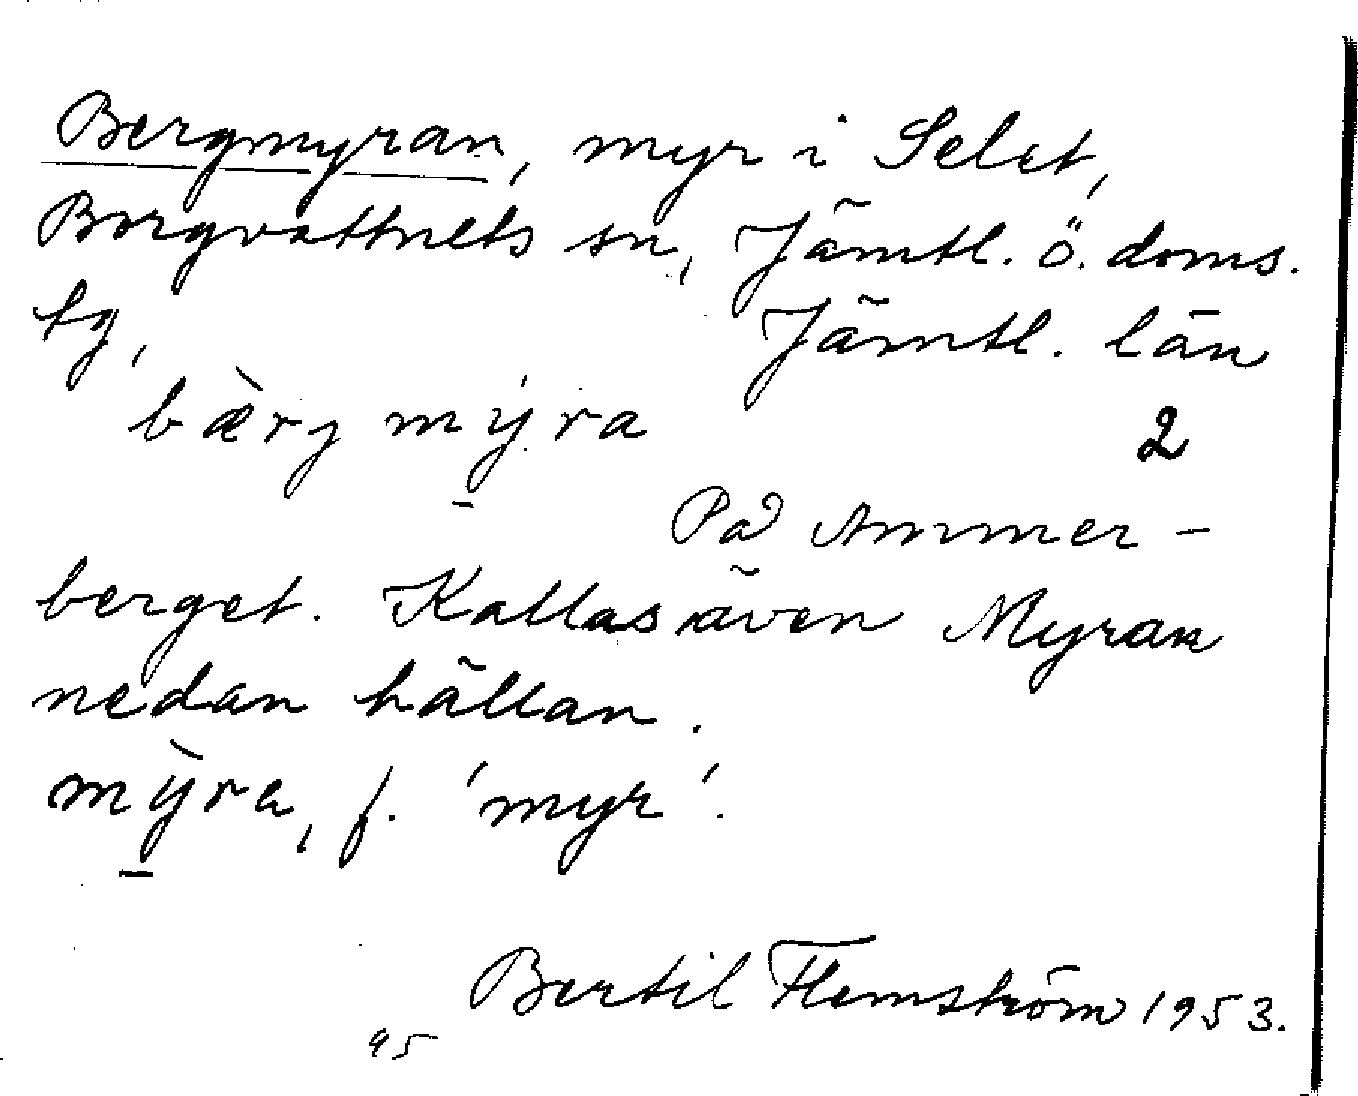 Bergmyran, myr i Selet,
Borgvattnets sn, Jämtl. ö. doms.
tg, Jämtl. län
bærj mýra 2
På Ammer-
berget. Kallas även Myran
nedan hällan.
mỳra, f. 'myr'.
Bertil Flemström 1953.
95